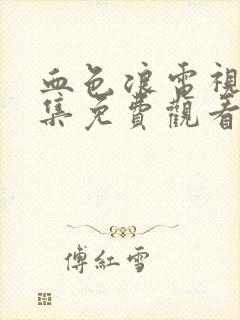 血色浪雷視
集免費觀看
傅紅雪